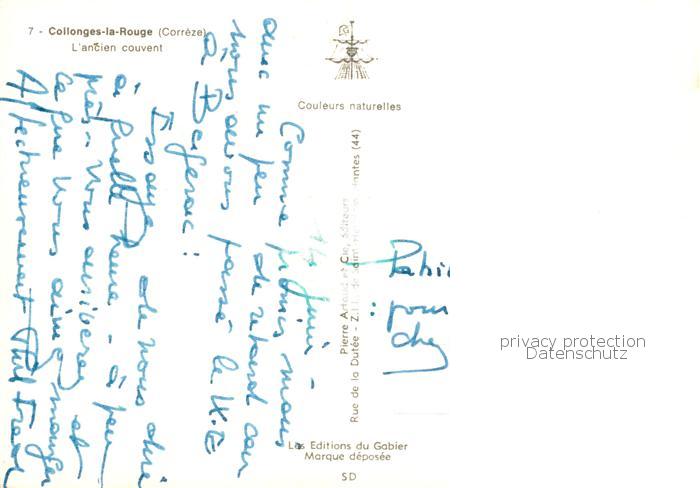 7 - Collonges-la-Rouge (Corrèze)
L'ancien couvent
Couleurs naturelles
Pierre Artaud et Cie, éditeurs
Rue de la Dutée - Z.I.L. de Saint- Nantes (44)
Les Editions du Gabier
Marque déposée
SD
Juin -
Comme promis mais
avec un peu de retard car
nous avons passé le W.E
à Bergerac !
Essayez de nous dire
à quelle heure - à peu
près - vous arriverez et
ce que vous aimez manger
Affectueusement
pour
chez
privacy protection
Datenschutz